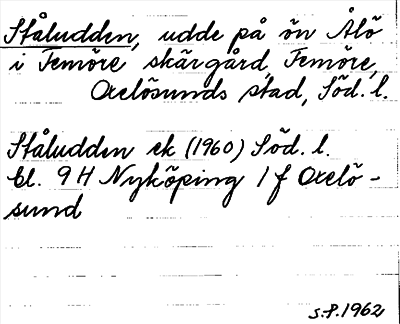 Ståludden, udde på ön Ålö
i Femöre skärgård, Femöre,
Oxelösunds stad, Söd. l.
Ståludden ek (1960) Söd. l.
bl. 9 H Nyköping 1 f Oxelö-
sund
S.P. 1962